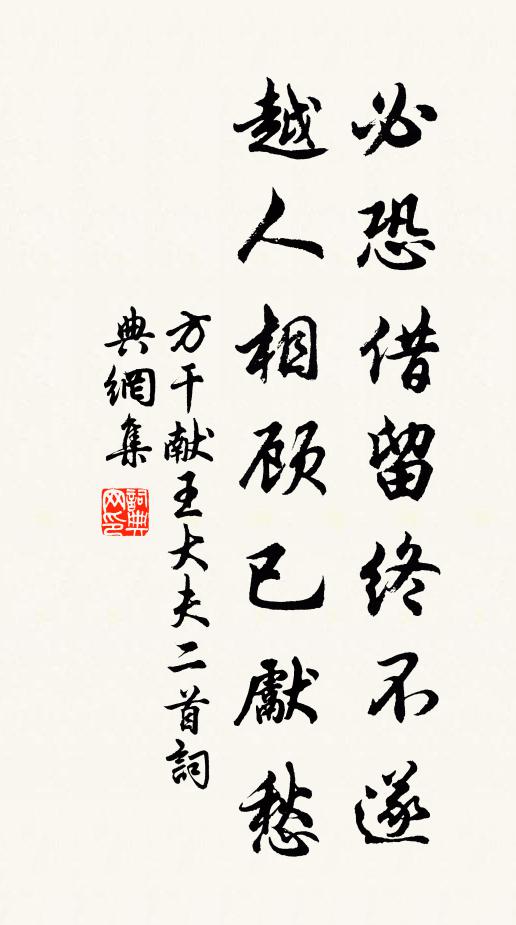 必恐借留終不遂
越人相顾已獻愁
方干献王大夫二首詞
典網集
詞典
网印